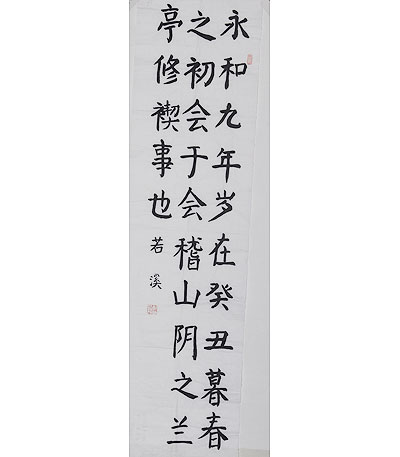 永和九年岁在癸丑暮春
之初会于会稽山阴之兰
亭修禊事也
若溪